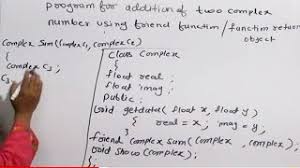 program for addition of two complex
number using friend function / function return
object
complex sum(complex c1, complex c2)
{
complex c3;
c3
class complex
{
float real;
float imag;
public:
void getdata( float x, float y)
{ real = x; imag = y;
}
friend complex sum(complex, complex);
void show(complex);